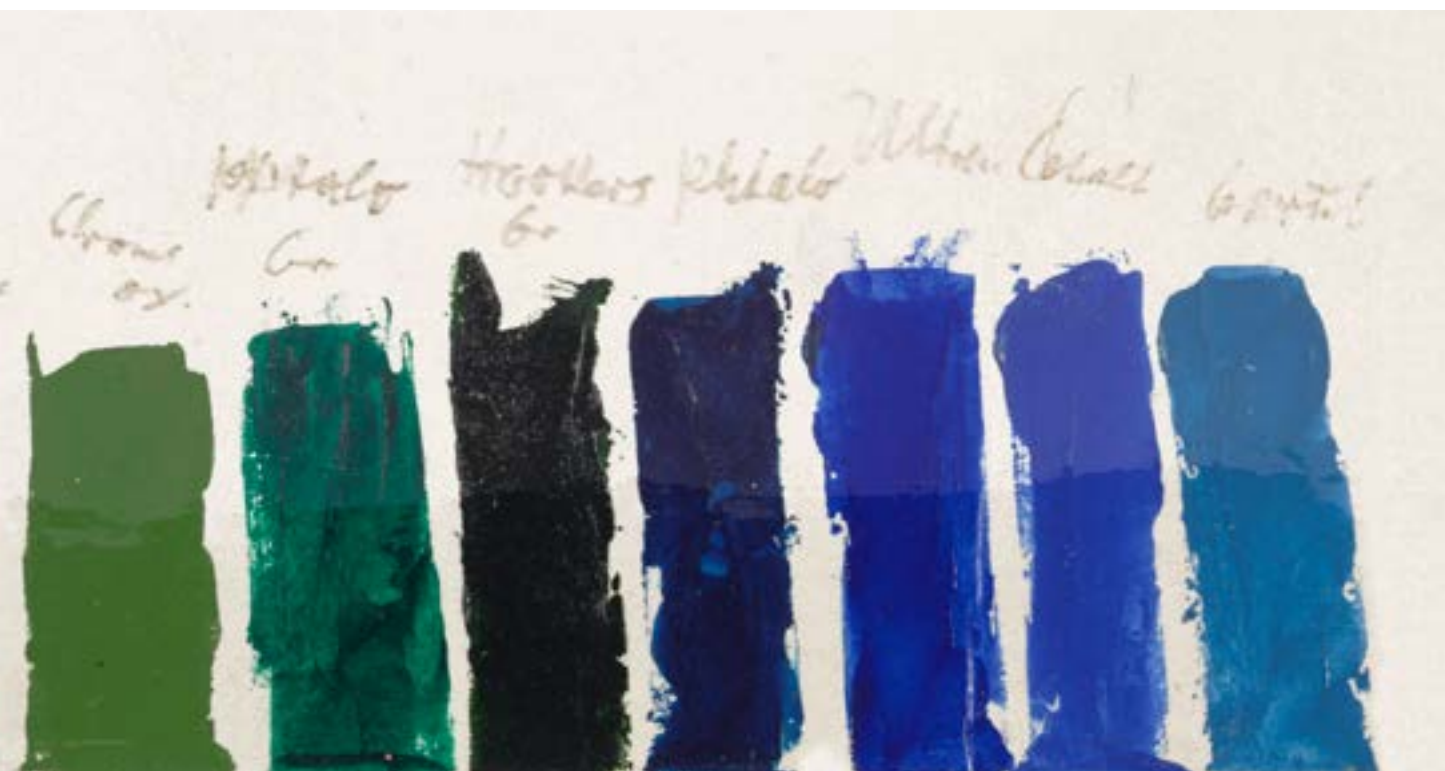 Chrome
ox.
Phthalo
Gr
Hookers
Gr
Phthalo
Ultra.
Cobalt